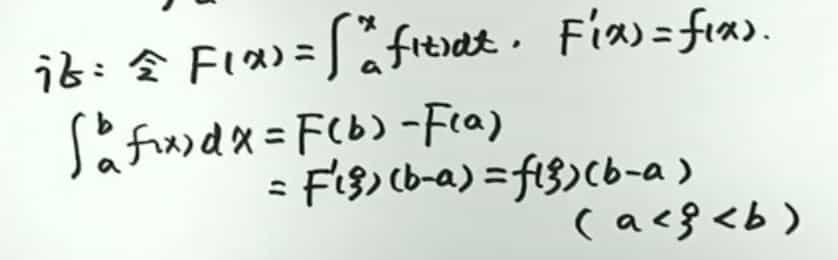 证: 令 F(x) = ∫ₐˣ f(t)dt. F'(x) = f(x).
∫ₐᵇ f(x)dx = F(b) - F(a)
= F'(ξ)(b-a) = f(ξ)(b-a)
(a<ξ<b)